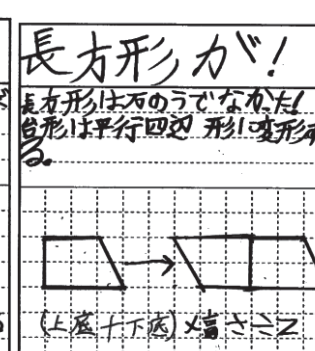 長方形が!
長方形は万のうでなかった!
台形は平行四辺形に変形す
る。
(上底+下底)×高さ÷2